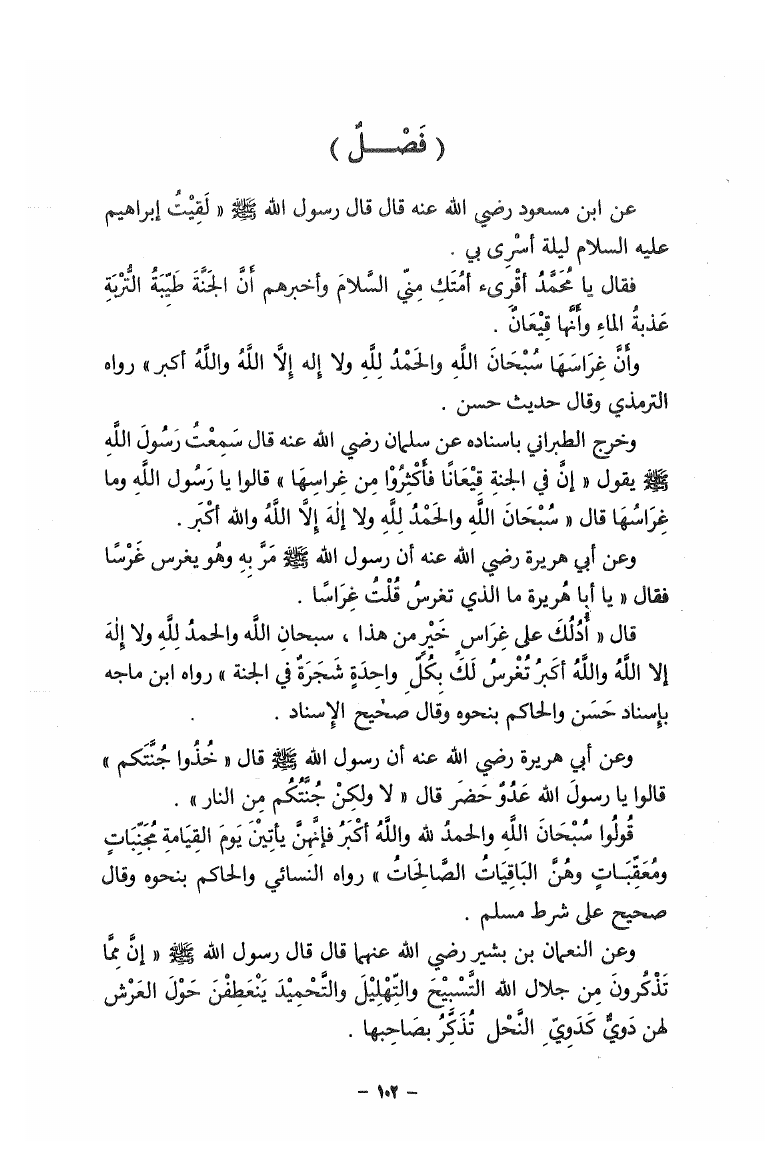 ( فَصْـــلٌ )
عن ابن مسعود رضي الله عنه قال قال رسول الله ﷺ « لَقِيْتُ إبراهيم
عليه السلام ليلة أسْرِى بي .
فقال يا مُحَمَّدُ أقْرِىء أمتَكِ مِنّي السَّلامَ وأخبرهم أَنَّ الجَنَّةَ طَيِّبَةُ التُّرْبَةِ
عَذبةُ الماءِ وأَنَّها قِيْعَانٌ .
وأَنَّ غِرَاسَهَا سُبْحَانَ اللَّهِ والحَمْدُ لِلَّهِ ولا إله إِلَّا اللَّهُ واللَّهُ أكبر » رواه
الترمذي وقال حديث حسن .
وخرج الطبراني باسناده عن سلمان رضي الله عنه قال سَمِعْتُ رَسُولَ اللَّهِ
ﷺ يقول « إنَّ في الجنةِ قِيْعَانًا فأَكْثِرُوْا مِن غِراسِهَا » قالوا يا رَسُول اللَّهِ وما
غِرَاسُهَا قال « سُبْحَانَ اللَّهِ والحَمْدُ لِلَّهِ ولا إلٰهَ إلَّا اللَّهُ والله أكْبَر .
وعن أبي هريرة رضي الله عنه أن رسول الله ﷺ مَرَّ بِهِ وهُو يغرس غَرْسًا
فقال « يا أبا هُريرة ما الذي تغرسُ قُلْتُ غِرَاسًا .
قال « أَدُلُكَ على غِرَاسٍ خَيْرٍ من هذا ، سبحانِ اللَّه والحمدُ لِلَّهِ ولا إلٰهَ
إلا اللَّهُ واللَّهُ أكبَرُ تُغْرسُ لَكَ بِكُلّ واحِدَةٍ شَجَرَةٌ في الجنة » رواه ابن ماجه
بإسناد حَسَن والحاكم بنحوه وقال صحيح الإسناد .
وعن أبي هريرة رضي الله عنه أن رسول الله ﷺ قال « خُذُوا جُنَّتَكم »
قالوا يا رسولَ الله عَدُوٌ حَضَرَ قال « لا ولكِنْ جُنَّتُكُم مِن النار » .
قُولُوا سُبْحَانَ اللَّهِ والحمدُ لله واللَّهُ أكْبَرُ فإنَّهنَّ يأتِيْنَ يَومَ القِيَامةِ مُجَنّبَاتٍ
ومُعَقِّبَـاتٍ وهُنَّ البَاقِيَاتُ الصَّالِحَاتُ » رواه النسائي والحاكم بنحوه وقال
صحيح على شرط مسلم .
وعن النعمان بن بشير رضي الله عنهما قال قال رسول الله ﷺ « إنَّ مِمَّا
تَذْكُرونَ مِن جلال الله التَّسْبِيْحَ والتِّهْلِيْلَ والتَّحْمِيْدَ يَنْعَطِفْنَ حَوْلَ العَرْش
لهن دَويٌّ كَدَوِيّ النَّحْل تُذَكِّرُ بصَاحِبها .
– ١٠٢ –